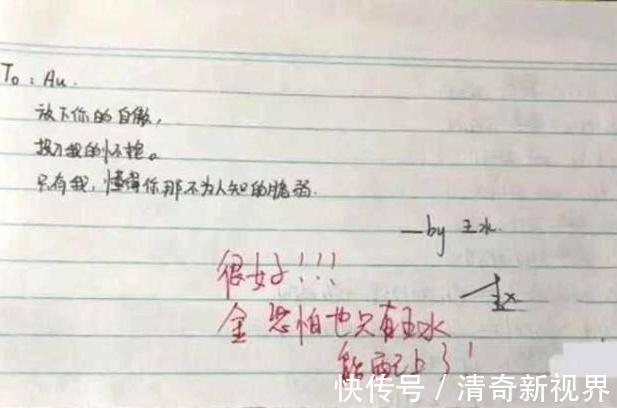 To：Au.
放下你的自傲，
投入我的怀抱。
只有我，懂得你那不为人知的脆弱.
—by 王水.
很好！！！
金恐怕也只有王水
能配上了！
快传号／清奇新视界